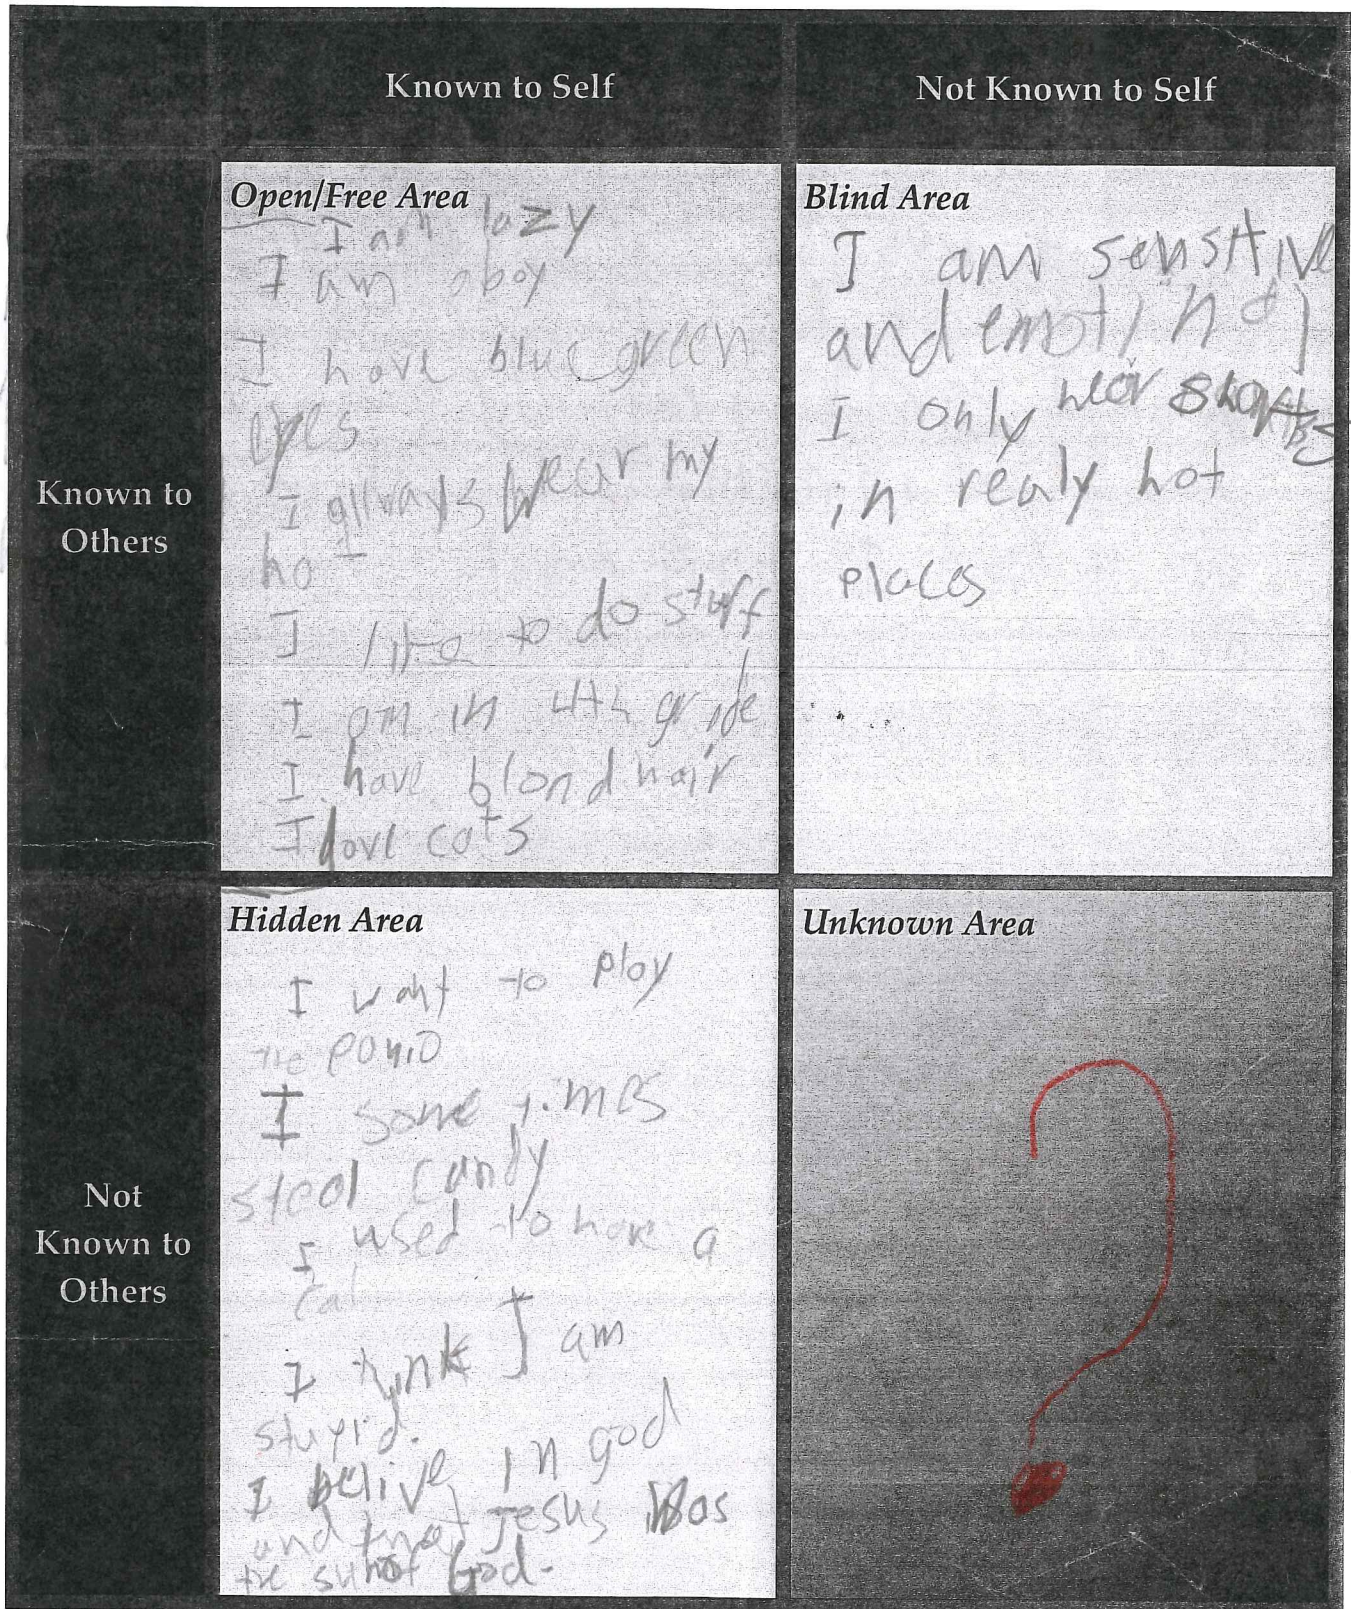 Known to Self
Not Known to Self
Known to
Others
Open/Free Area
I am lazy
I am a boy
I have blue green
eyes
I allways wear my
hat
I like to do stuff
I am in 4th grade
I have blond hair
I love cats
Blind Area
I am sensitive
and emotinal
I only wear shorts
in realy hot
places
Not
Known to
Others
Hidden Area
I want to play
the panio
I some times
steal candy
I used to have a
cat
I think I am
stupid.
I belive in god
and that Jesus was
the sun of God.
Unknown Area
?